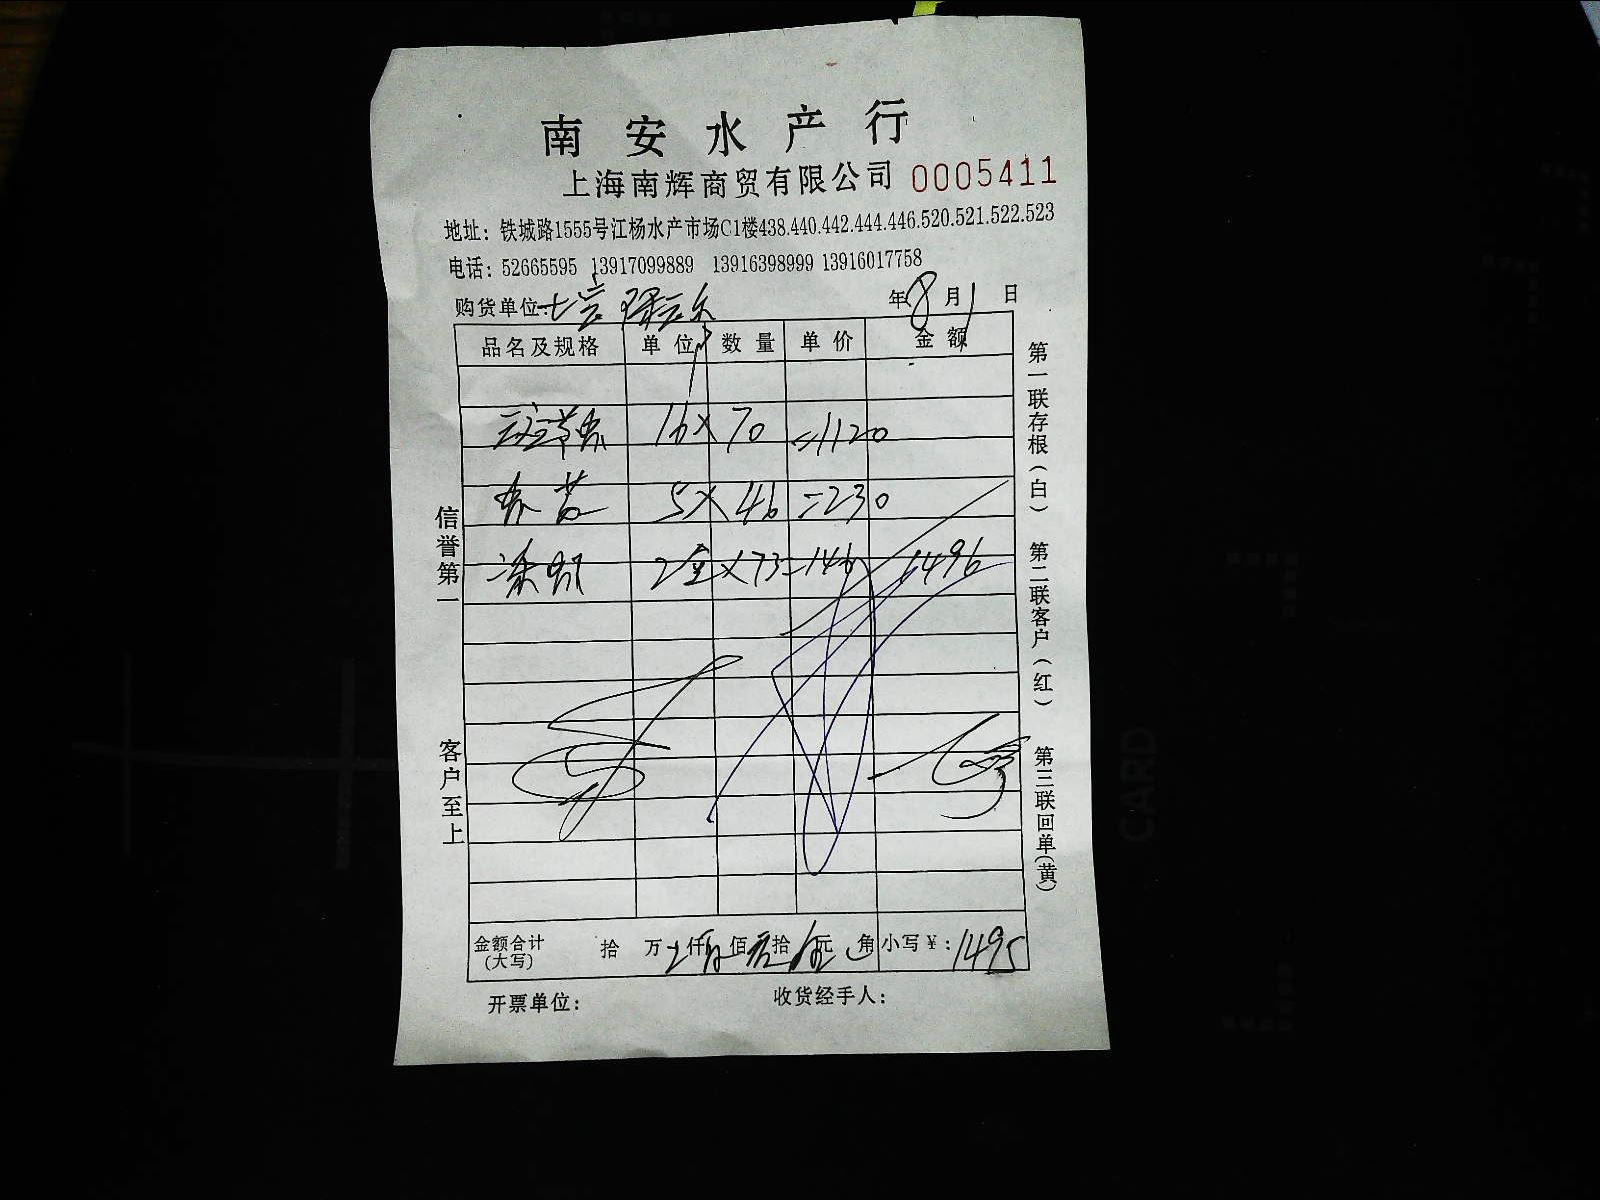 南安水产行
上海南辉商贸有限公司 0005411
地址：铁城路1555号江杨水产市场C1楼438.440.442.444.446.520.521.522.523
电话：52665595 13917099889 13916398999 13916017758
购货单位： 年8月1日
品名及规格 单位 数量 单价 金额
16×70=1120
5×46=230
2盒×73=146 1496
信誉第一
客户至上
第一联存根（白）
第二联客户（红）
第三联回单（黄）
金额合计（大写） 拾 万 仟 佰 拾 元 角 小写￥：1495
开票单位： 收货经手人：